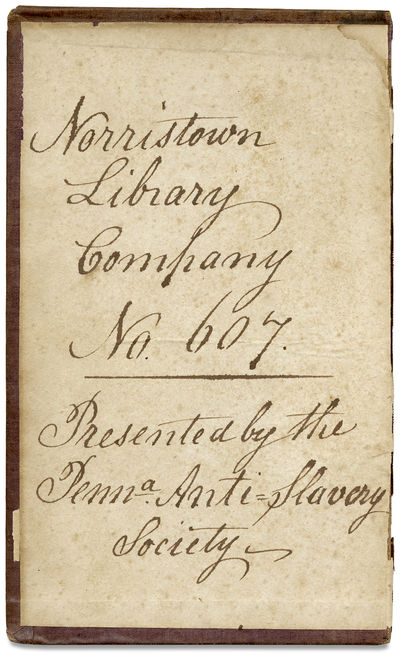 Norristown
Library
Company
No. 607.
Presented by the
Pennª. Anti=Slavery
Society